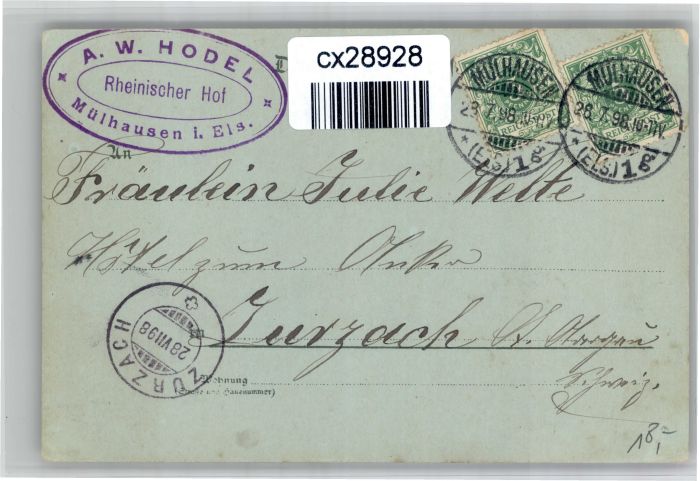 A. W. HODEL
Rheinischer Hof
Mülhausen i. Els.
cx28928
MÜLHAUSEN
28.7.98.
*(ELS.)1g*
MÜLHAUSEN
28.7.98.
*(ELS.)1g*
An
Fräulein Julie Welte
Hôtel zum Anker
Zurzach Kt. Aargau
Schweiz.
ZURZACH
28 VII 98
Wohnung
(Straße und Hausnummer)
18,-